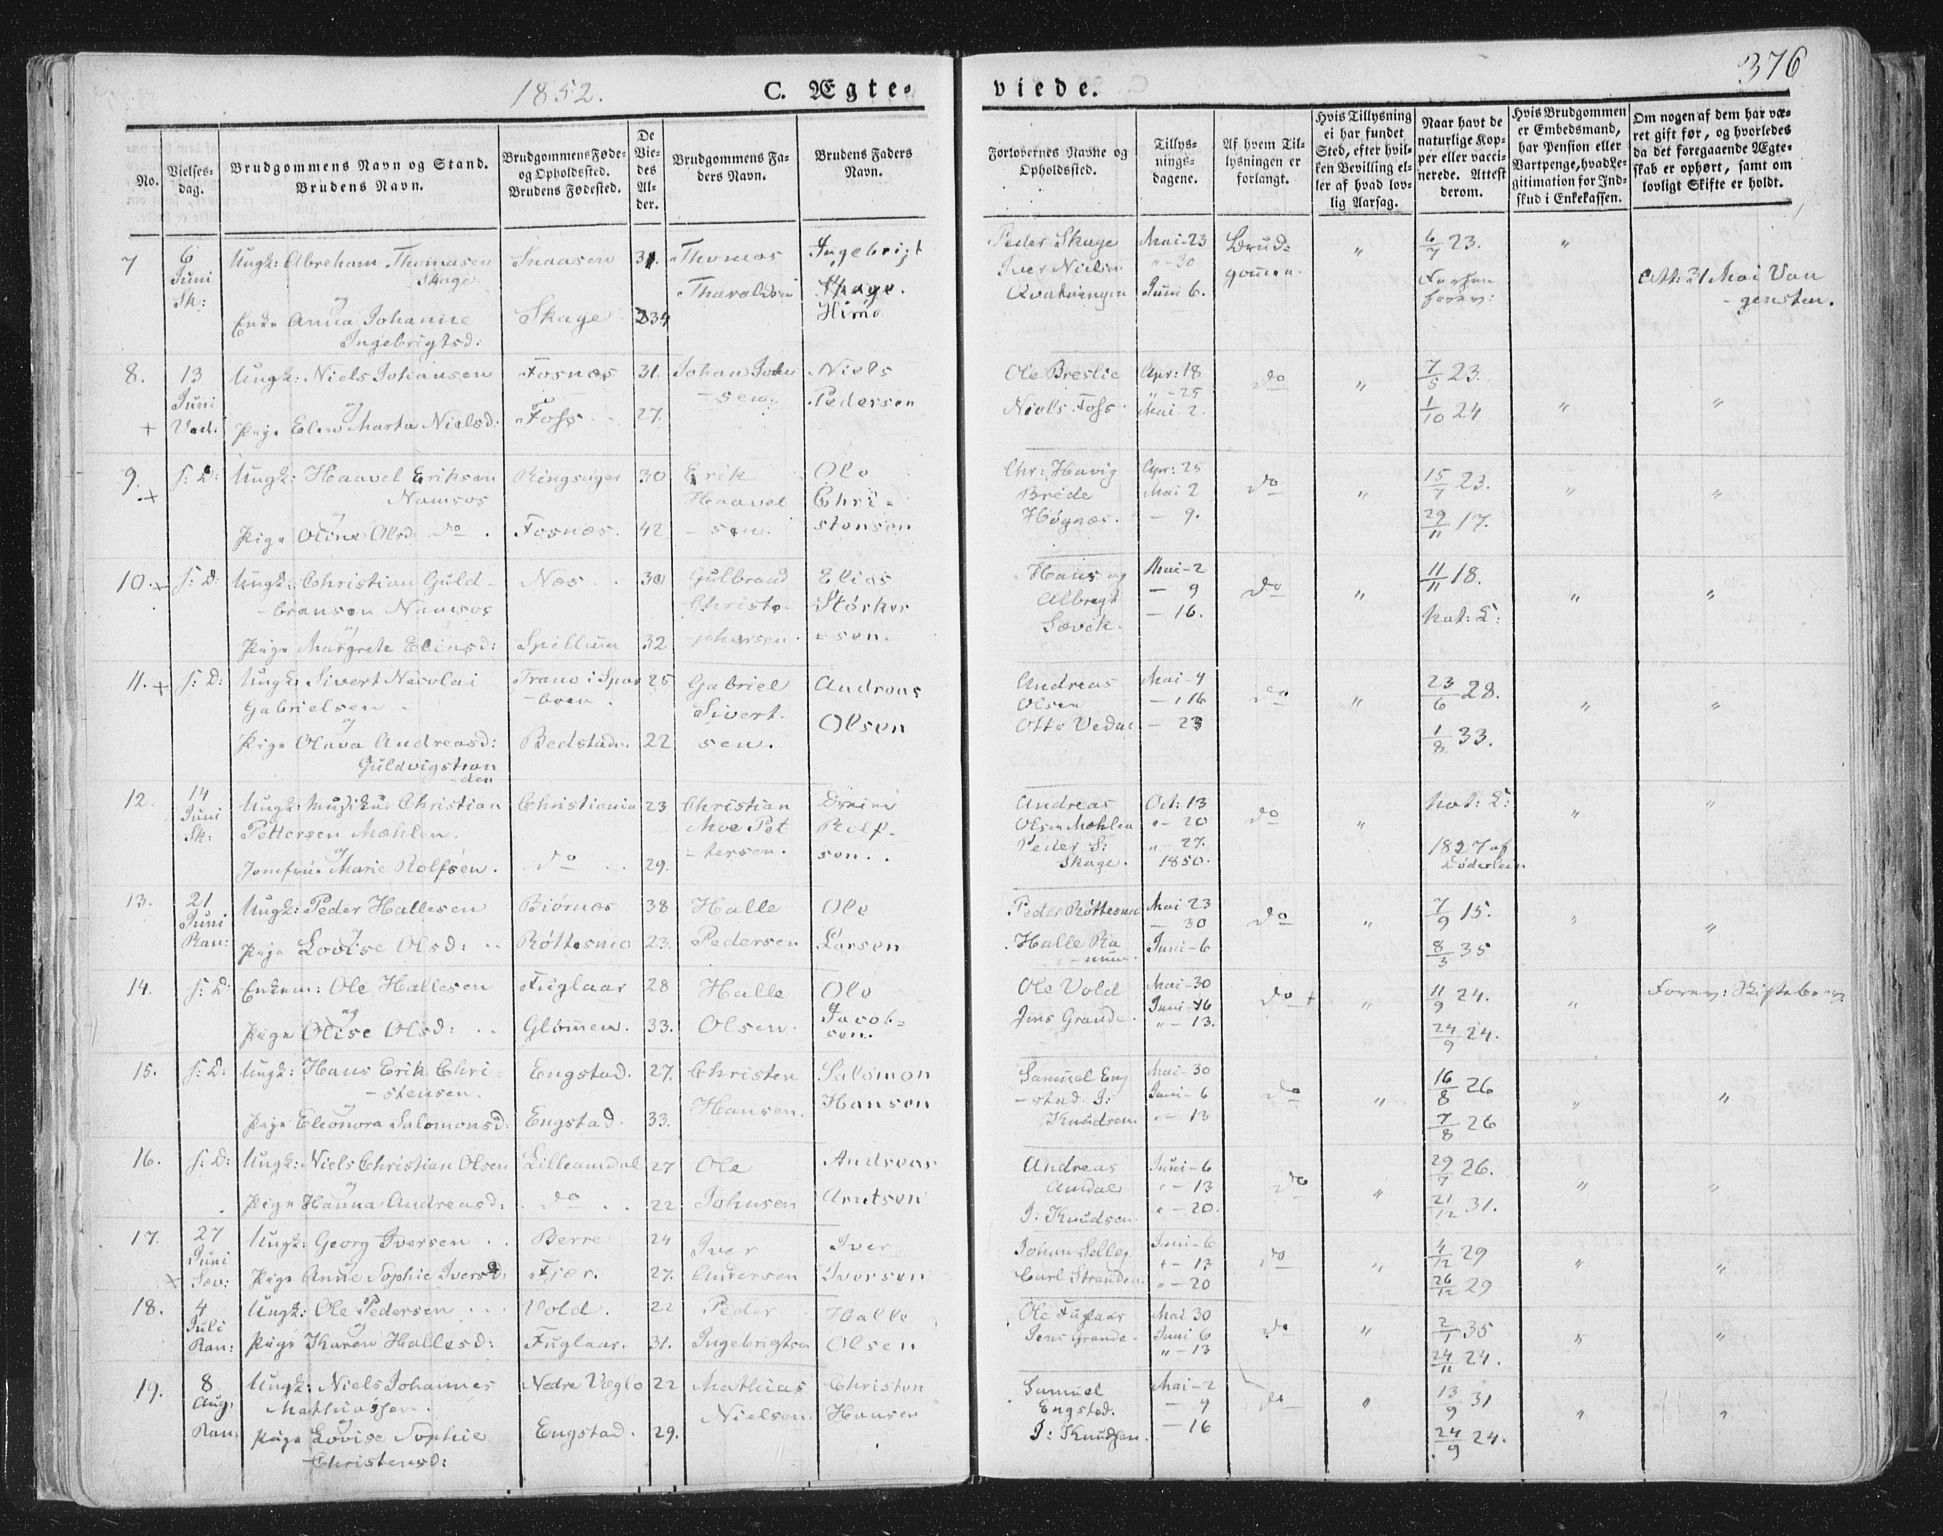 1852.
C. Ægte-
viede.
376
No.
Vielses-
dag.
Brudgommens Navn og Stand.
Brudens Navn.
Brudgommens Føde-
og Opholdssted.
Brudens Fødested.
De
Vie-
des
Al-
der.
Brudgommens Fa-
ders Navn.
Brudens Faders
Navn.
Forlovernes Navne og
Opholdssted.
Tillys-
nings-
dagene.
Af hvem Til-
lysningen er
forlangt.
Hvis Tillysning
ei har fundet
Sted, efter hvil-
ken Bevilling el-
ler af hvad lov-
lig Aarsag.
Naar havt de
naturlige Kop-
per eller vacci-
nerede. Attest
derom.
Hvis Brudgommen
er Embedsmand,
har Pension eller
Vartpenge, hvad Le-
gitimation for Ind-
skud i Enkekassen.
Om nogen af dem har væ-
ret gift før, og hvorledes
da det foregaaende Ægte-
skab er ophørt, samt om
lovligt Skifte er holdt.
7 6 Juni Sk:
Ungk: Abreham Thomasen
Skage
og
Enke Anna Johanne
Ingebrigtsd:
Snaasen 31.
Skage 34
Thomas
Ingebrigt
Skage.
Himo
Peder Skage
Iver Nielsen
Mai-23
"-30
Juni 6.
Brud-
gommen.
"
6/7 23.
"
Att: 31 Mai Van
gensten.
8. 13 Juni Vad: +
Ungk: Niels Johansen
og
Pige Elen Marta Nielsd:
Fosnæs 31.
Foss 27.
Johan John
-sen.
Niels
Pedersen
Ole Breslie
Niels Foss
Apr: 18
"-25
Mai-2.
do
"
7/5 23.
1/10 24
"
"
9. + s: D:
Ungk: Haavel Eriksen
Namsos
og
Pige Oline Olsd: do.
Ringsager 30
Fosnæs. 42
Erik
Haavel
-sen.
Ole
Chri-
stensen
Chr: Havig
Brede
Høgnæs.
Apr: 25
Mai 2
- 9.
do
"
15/7 23.
29/11 17.
"
"
10. + s: D:
Ungk: Christian Guld-
bransen Namsos
og
Pige Margrete Eliasd:
Næs 30
Spillum 32
Gulbrand
Christo-
phersen.
Elias
Størker
-sen.
Hans og
Albregt
Sævik.
Mai-2
- 9
- 16.
do
"
11/11 18.
nat: K:
"
"
11. + s: D:
Ungk: Sivert Nicolai
Gabrielsen
og
Pige Olava Andreasd:
Guldvigstran
den
Trano i Spar
-boen.
25
Bedstade. 22
Gabriel
Sivert-
sen.
Andreas
Olsen
Andreas
Olsen
Otto Vedal
Mai-9
- 16
- 23
do
"
23/6 28.
1/8 33.
"
"
12. 14 Juni Sk:
Ungk: Musikus Christian
Pettersen Mæhlen.
og
Jomfrue Marie Rolfsen.
Christiania 23
do 29.
Christian
Moe Pet
-tersen.
Rolf-
sen.
Andreas
Olsen Mæhlen
Peder S:
Skage.
Oct: 13
"- 20
"- 27.
1850.
do
"
nat: K:
1827 af
Døderlein
"
"
13. 21 Juni Ran:
Ungk: Peder Hallesen
og
Pige Lovise Olsd:
Biørnæs 38
Røttesmo 23.
Halle
Pedersen
Ole
Larsen
Peder Røttesmo
Halle Ra
-num.
Mai 23
- 30
Juni-6
do
"
7/9 15.
8/3 35
"
"
14. s: D:
Enkem: Ole Hallesen
og
Pige Olise Olsd:
Fuglaar 28
Glømmen. 33.
Halle
Olsen.
Ole
Jacob-
sen.
Ole Vold
Jens Grande.
Mai-30
Juni-6
"- 13.
do +
"
11/9 24.
24/9 24.
"
Forev: Skiftebrev
15. s: D:
Ungk: Hans Erik Chri
-stensen.
og
Pige Eleonora Salomonsd:
Engstad. 27.
Engstad. 33.
Christen
Hansen.
Salomon
Hansen
Samuel Eng
-stad. I:
Knudsen.
Mai-30
Juni-6
"- 13
do
"
16/8 26
7/8 26
"
"
16. s: D:
Ungk: Niels Christian Olsen
og
Pige Hanna Andreasd:
Lilleamdal 27
do 22
Ole
Johnsen
Andreas
Arntsen
Andreas
Amdal
I: Knudsen
Juni-6
"- 13
"- 20.
do
"
29/7 26.
21/12 31.
"
"
17. 27 Juni Sæv: +
Ungk: Georg Iversen
og
Pige Anne Sophie Iversd:
Berre 24
Fjær. 27.
Iver
Andersen
Iver
Iversen
Johan Selleg
Carl Stranden
Juni-6
"- 13
"- 20
do
"
4/12 29
26/12 29
"
"
18. 4 Juli Ran:
Ungk: Ole Pedersen
og
Pige Karen Hallesd:
Vold. 22
Fuglaar. 31.
Peder
Ingebrigtsen
Halle
Olsen
Ole Fuglaar
Jens Grande.
Mai 30
Juni 6
"- 13
do
"
2/1 35
24/11 24.
"
"
19. 8 Aug: Ran:
Ungk: Niels Johannes
Mathiassen.
og
Pige Lovise Sophie
Christensd:
Nedre Væglo 22
Engstad. 29.
Mathias
Nielsen.
Christen
Hansen
Samuel
Engstad.
I: Knudsen.
Mai-2
- 9
- 16
do
"
13/9 31
24/9 24.
"
"